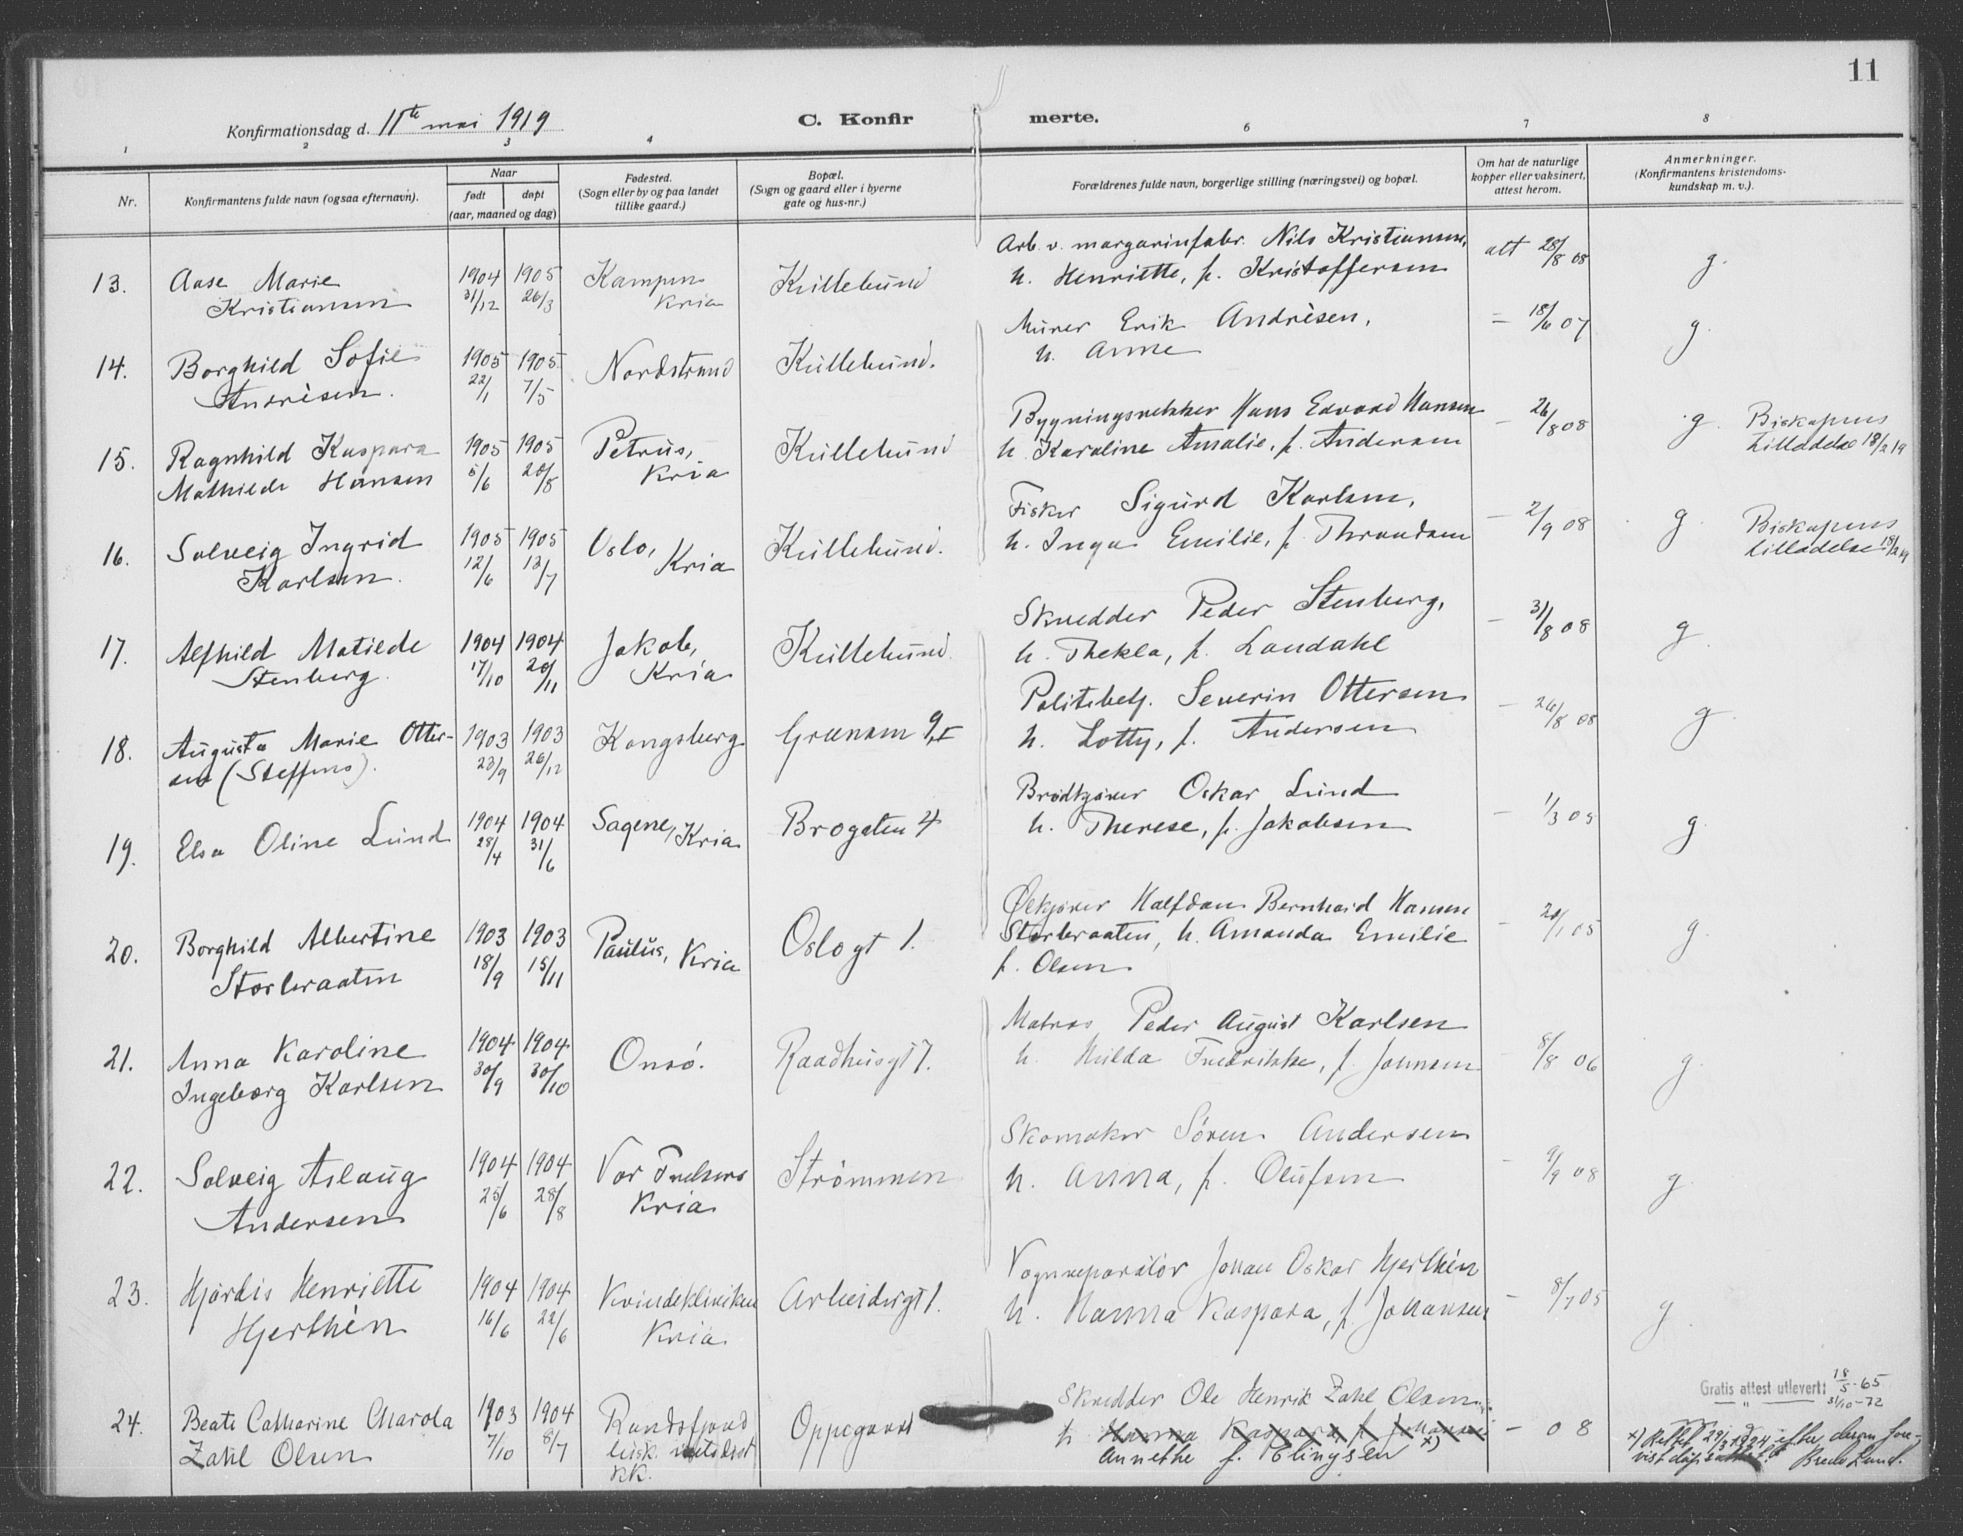 11
Konfirmationsdag d. 11te mai 1919
C. Konfirmerte.
1 2 3 4 6 7 8
Nr.
Konfirmantens fulde navn (ogsaa efternavn).
Naar
født døpt
(aar, maaned og dag)
Fødested.
(Sogn eller by og paa landet
tillike gaard.)
Bopæl.
(Sogn og gaard eller i byerne
gate og hus-nr.)
Forældrenes fulde navn, borgerlige stilling (næringsvei) og bopæl.
Om hat de naturlige
kopper eller vaksinert,
attest herom.
Anmerkninger.
(Konfirmantens kristendoms-
kundskap m. v.).
13. Aase Marie 1904 1905 Kampen Kullebund Arb. v. margarinfabr. Nils Kristiansen, att 28/8 08 g.
Kristiansen 31/12 26/3 Kria h. Henriette, f. Kristoffersen
14. Borghild Sofie 1905 1905 Nordstrand Kullebund. Murer Erik Andrèsen, = 18/6 07 g.
Andrèsen. 22/1 7/5 h. Anne
15. Ragnhild Kaspara 1905 1905 Petrus, Kullebund Bygningssnekker Hans Edvard Hansen - 26/8 08 g. Biskopens
Mathilde Hansen 5/6 20/8 Kria h. Karoline Amalie, f. Andersen tilladelse 18/2 19
16. Solveig Ingrid 1905 1905 Oslo, Kullebund. Fisker Sigurd Karlsen, - 2/9 08 g Biskopens
Karlsen. 12/6 13/7 Kria h. Inga Emilie, f. Throndsen tilladelse 18/2 19
17. Alfhild Matilde 1904 1904 Jakob, Kullebund. Skredder Peder Stenberg, - 31/8 08 g.
Stenberg. 17/10 20/11 Kria h. Thekla, f. Landahl
18. Augusta Marie Otter- 1903 1903 Kongsberg Grænsen 9, I Politibetj. Severin Ottersen - 26/8 08 g.
sen (Steffens). 23/9 26/12 h. Lotty, f. Andersen
19. Elsa Oline Lund 1904 1904 Sagene, Kria Brogaten 4 Brødkjører Oskar Lund - 1/3 05 g.
28/4 31/6 h. Therese, f. Jakobsen
20. Borghild Albertine 1903 1903 Paulus, Kria Oslogt 1. Ølkjører Halfdan Bernhard Hansen - 20/1 05 g.
Storbraaten 18/9 15/11 Storbraaten, h. Amanda Emilie
f. Olsen
21. Anna Karoline 1904 1904 Onsö. Raadhusgt 7. Matros Peder August Karlsen - 8/8 06 g.
Ingeborg Karlsen 30/9 30/10 h. Hilda Fredrikke, f. Johnsen
22. Solveig Aslaug 1904 1904 Vor Frelsers Strömmen Skomaker Sören Andersen - 9/9 08 g.
Andersen 25/6 28/8 Kria h. Anna, f. Olufsen
23. Hjördis Henriette 1904 1904 Kvindeklinikken Arbeidergt 1. Vognreparatör Johan Oskar Hjerthèn - 8/7 05 g.
Hjerthèn 16/6 22/6 Kria h. Hanna Kaspara, f. Johansen
Gratis attest utlevert: 18/5-65
— " — 31/10-72
24. Beate Catharine Charola 1903 1904 Oppegaard Skredder Ole Henrik Zahl Olsen - 08
Zahl Olsen 7/10 8/7 h Hanna Kaspara f. Johansen
KK. Annethe f. Elingsen x)
x) Rettet
Brede Lund.